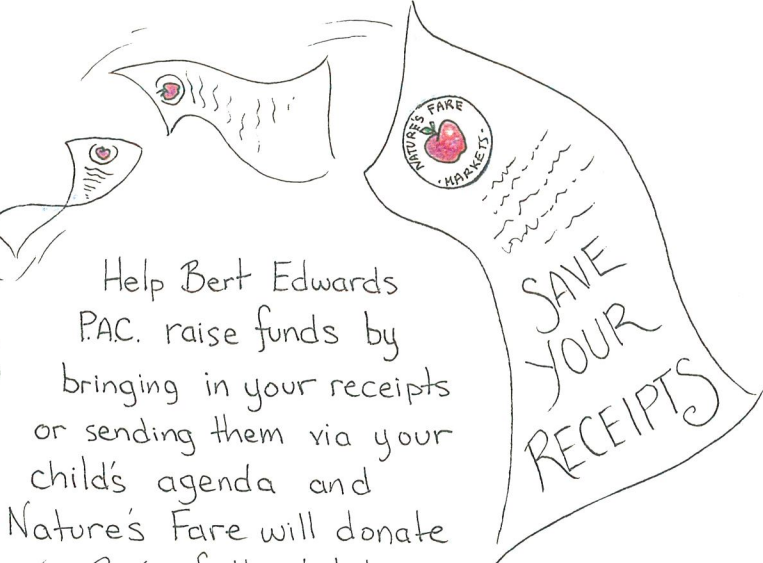 NATURE'S FARE
· MARKETS ·
SAVE
YOUR
RECEIPTS
Help Bert Edwards
P.A.C. raise funds by
bringing in your receipts
or sending them via your
child's agenda and
Nature's Fare will donate